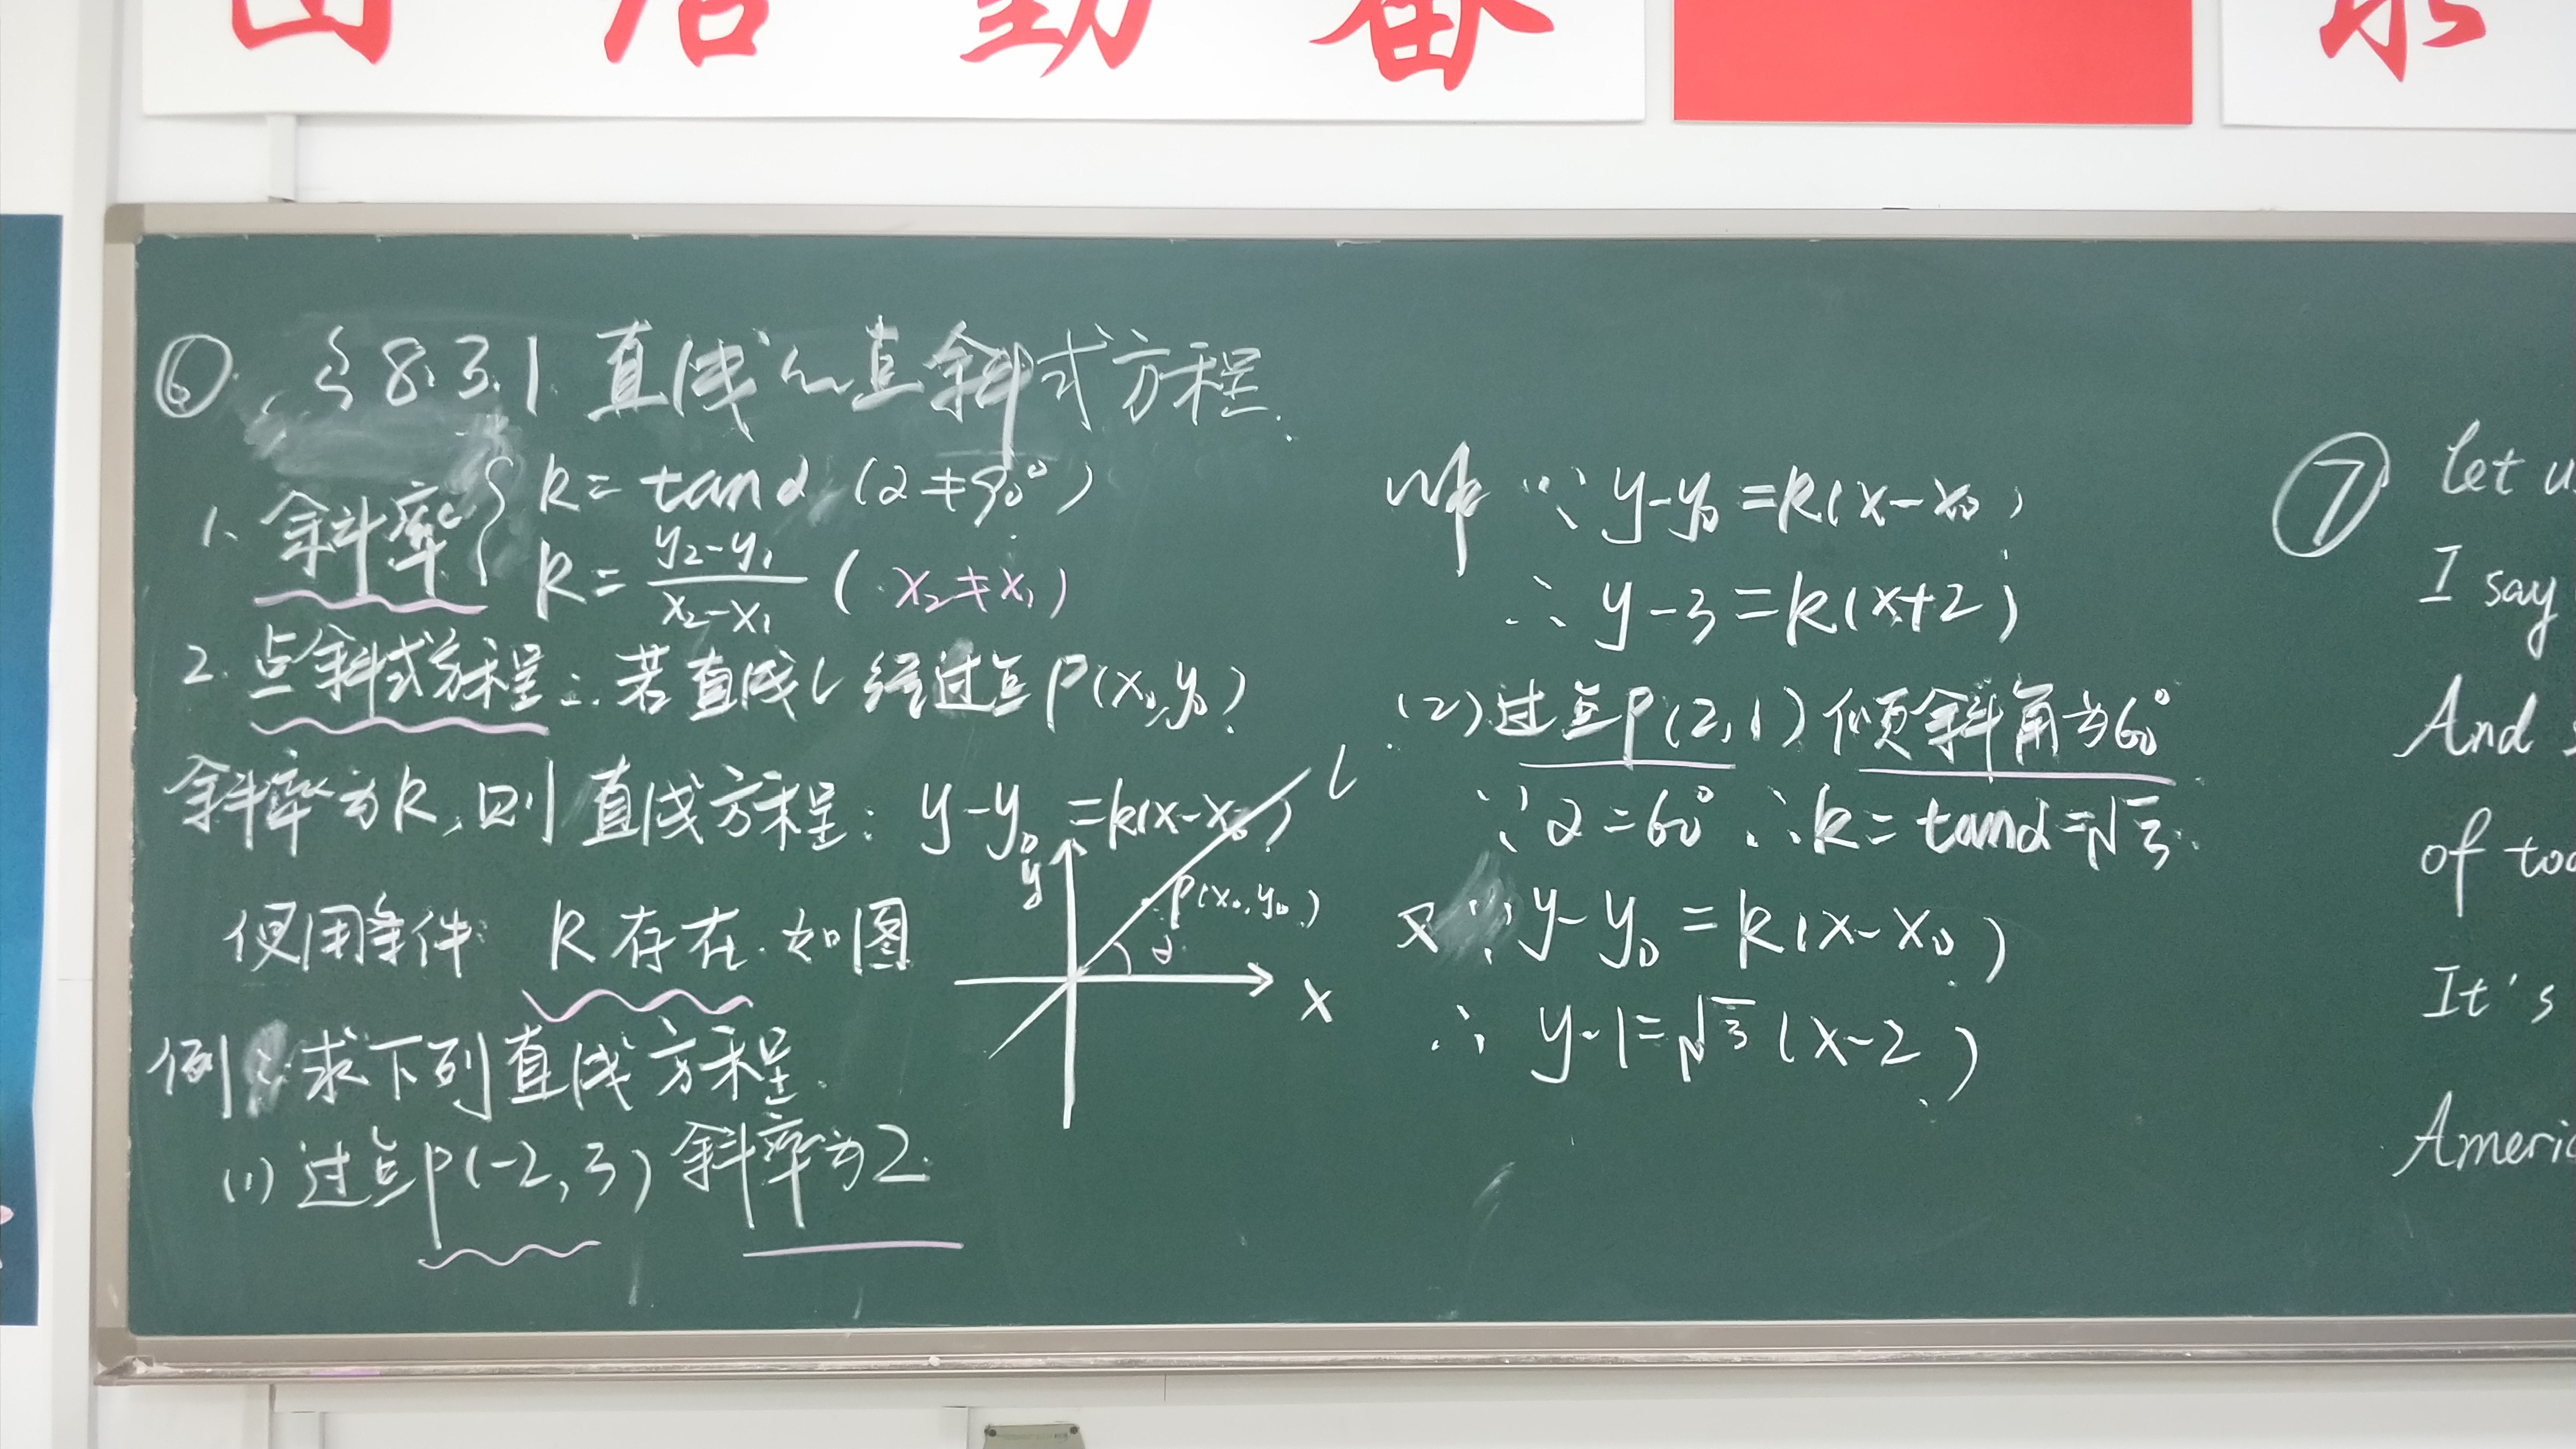 ⑥ §8.3.1 直线的点斜式方程.
1、斜率 { k = tanα (α≠90°)
k = \frac{y₂-y₁}{x₂-x₁} (x₂≠x₁)
2. 点斜式方程: 若直线l经过点P(x₀,y₀)
斜率为k,则直线方程: y-y₀=k(x-x₀)
使用条件: k存在.如图
y
l
P(x₀,y₀)
α
x
例:求下列直线方程.
(1) 过点P(-2,3) 斜率为2.
解 ∵ y-y₀=k(x-x₀)
∴ y-3=k(x+2)
(2)过点P(2,1)倾斜角为60°
∵α=60° ∴k=tanα=√3.
又∵ y-y₀=k(x-x₀)
∴ y-1=√3(x-2)
⑦ let u
I say
And
of to
It's
Americ